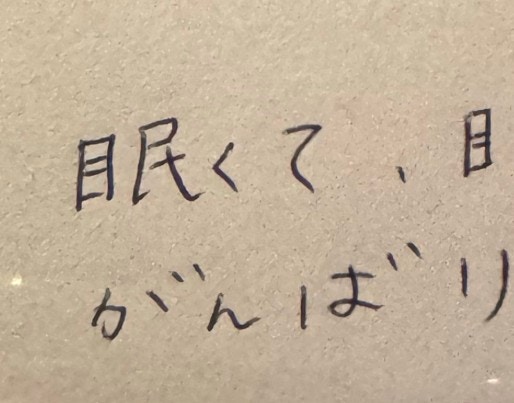 眠くて、目
がんばり